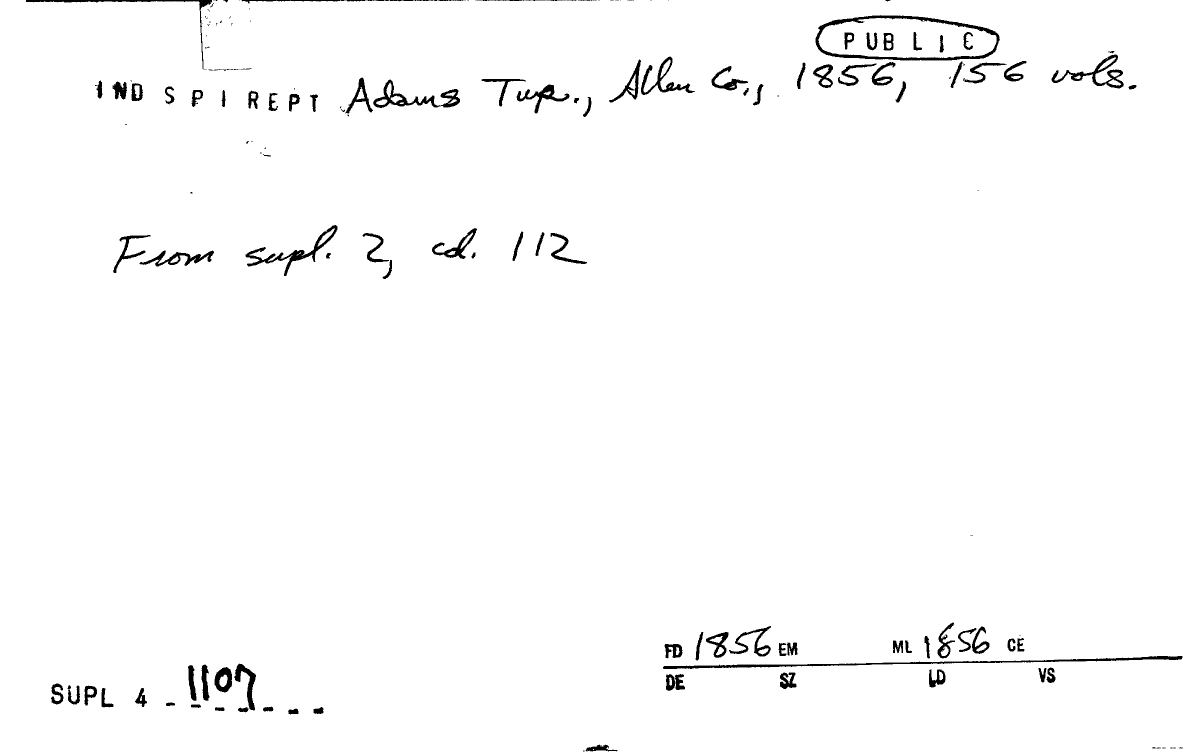 PUBLIC
IND SPI REPT Adams Twp., Allen Co., 1856, 156 vols.
From supl. 2, cd. 112
FD 1856 EM ML 1856 CE
DE SZ LD VS
SUPL 4 - 1107